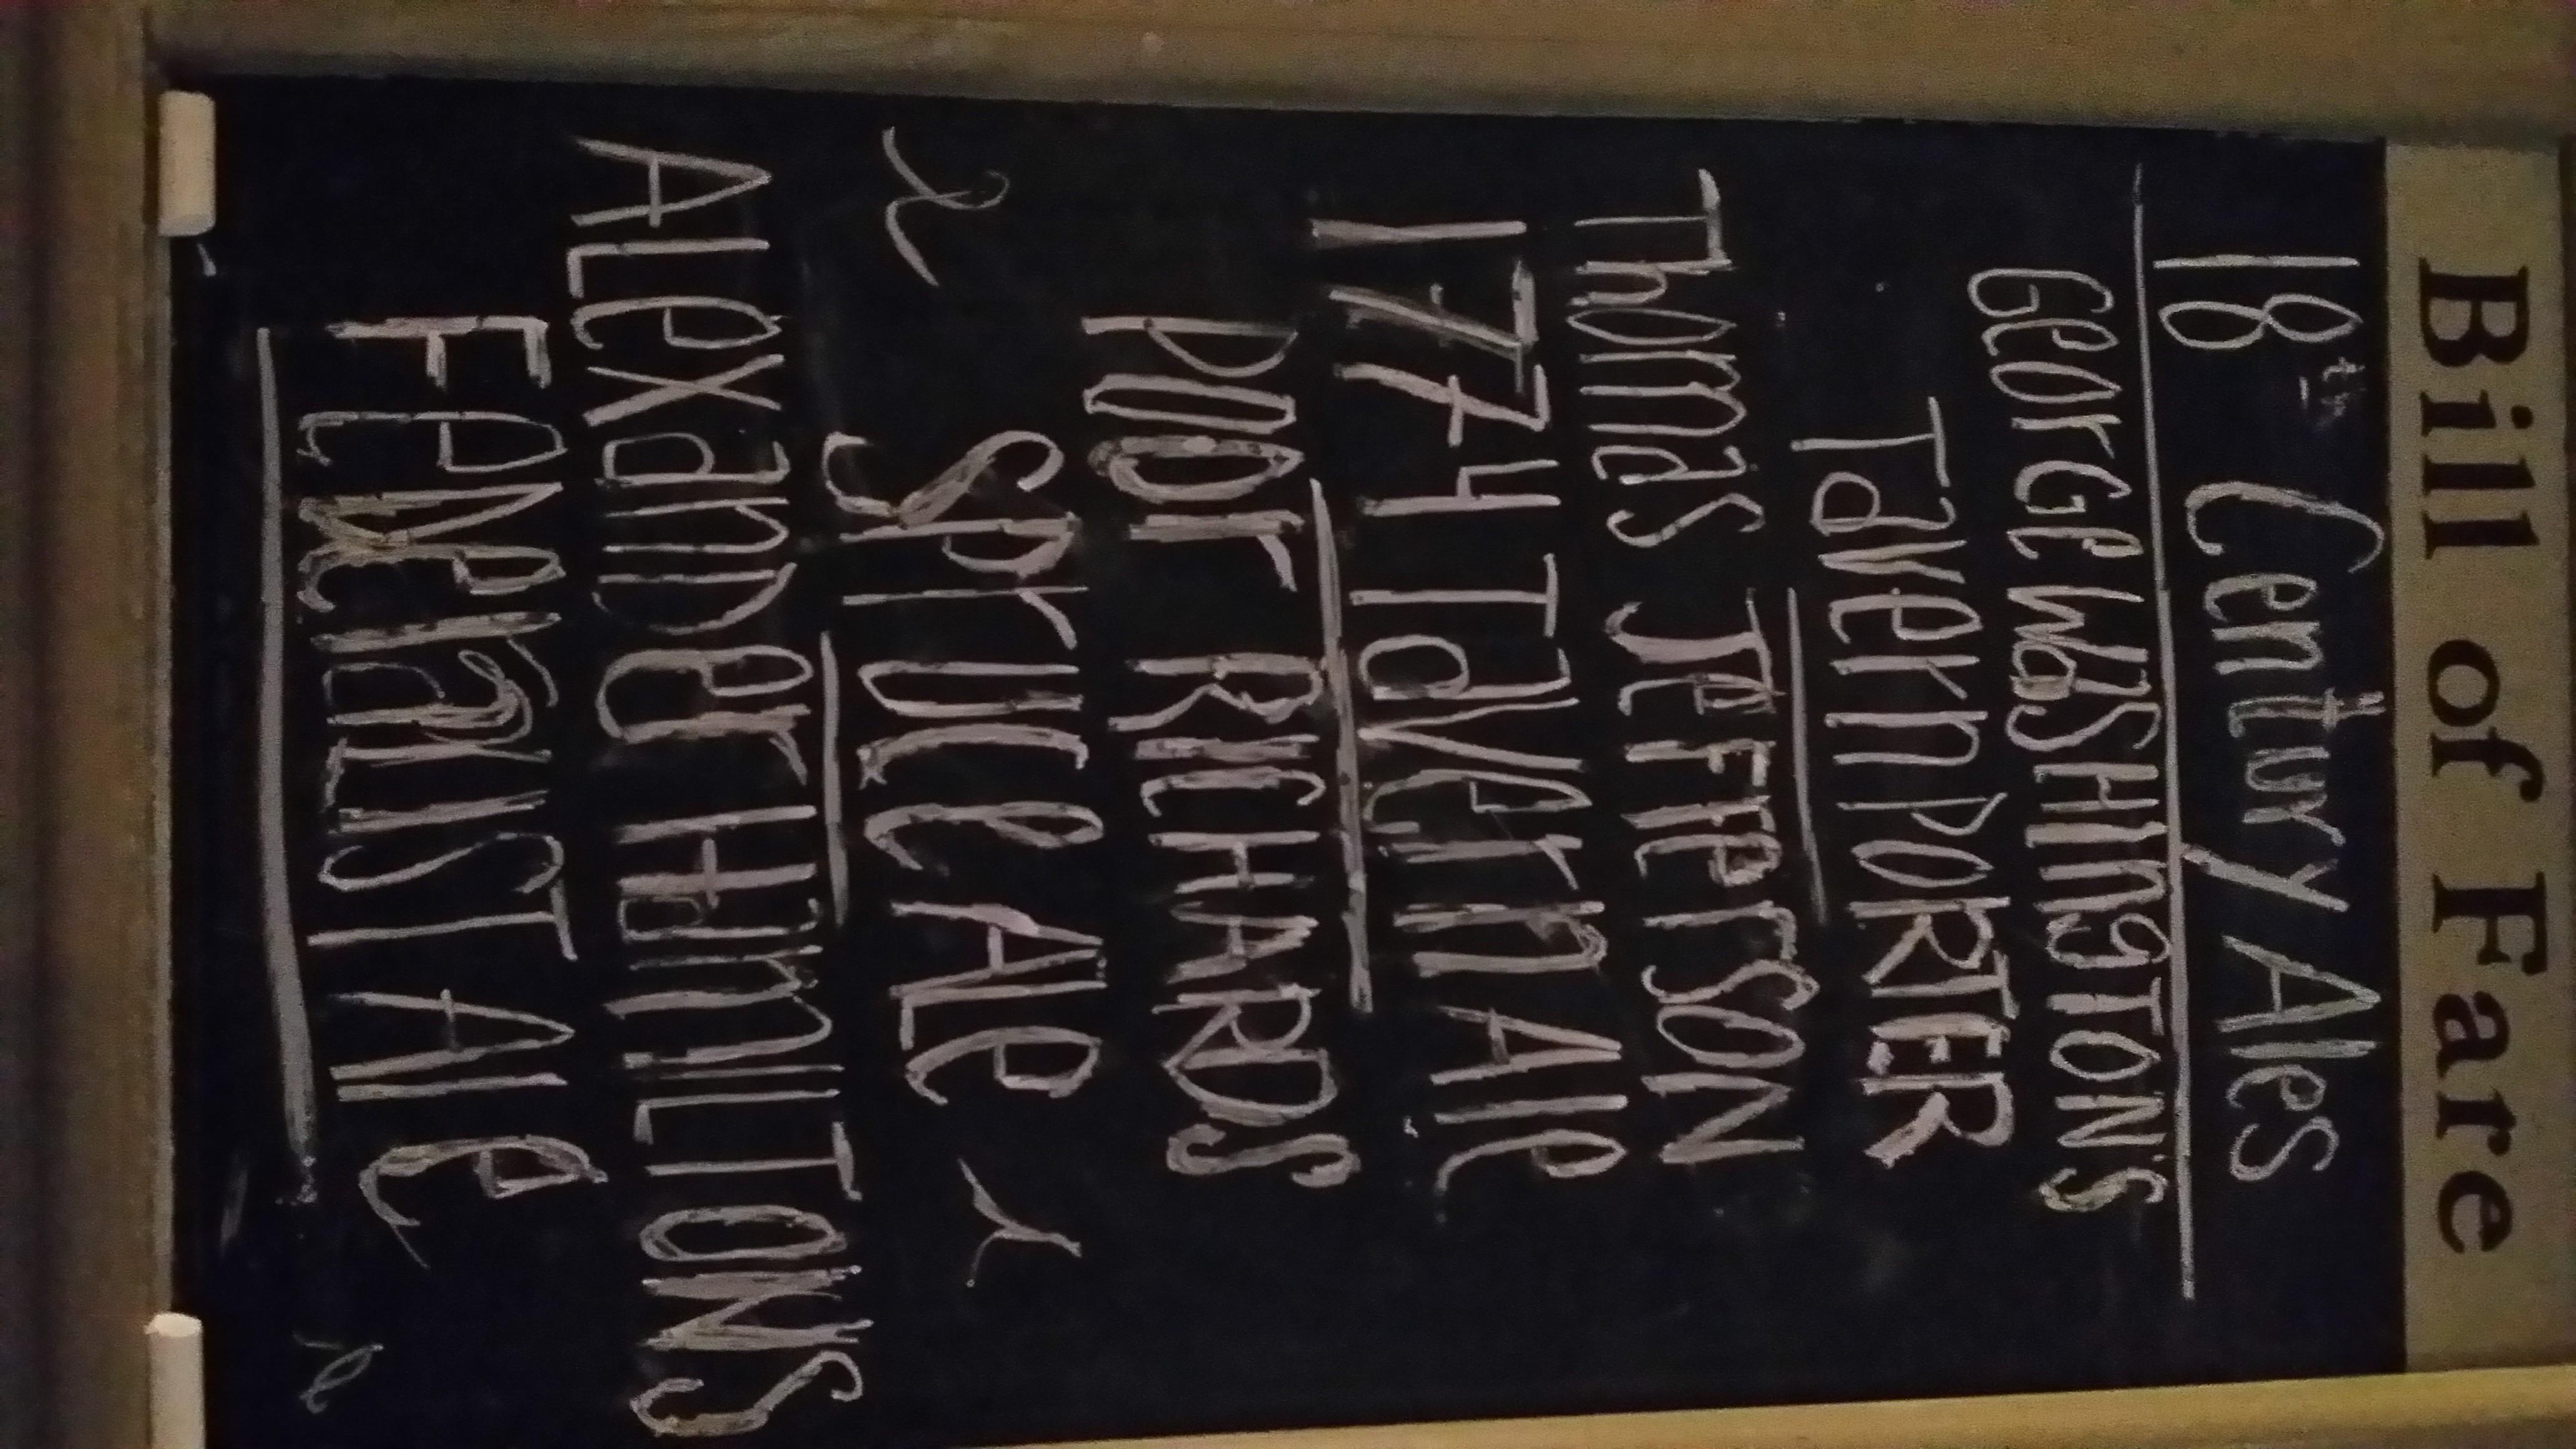 Bill of Fare
18th Century Ales
George WASHINGTON'S
Tavern PORTER
Thomas JEFFERSON
1774 Tavern Ale
POOr RICHARDS
Spruce ALe
ALexander HamiLTONS
FEDERALIST Ale